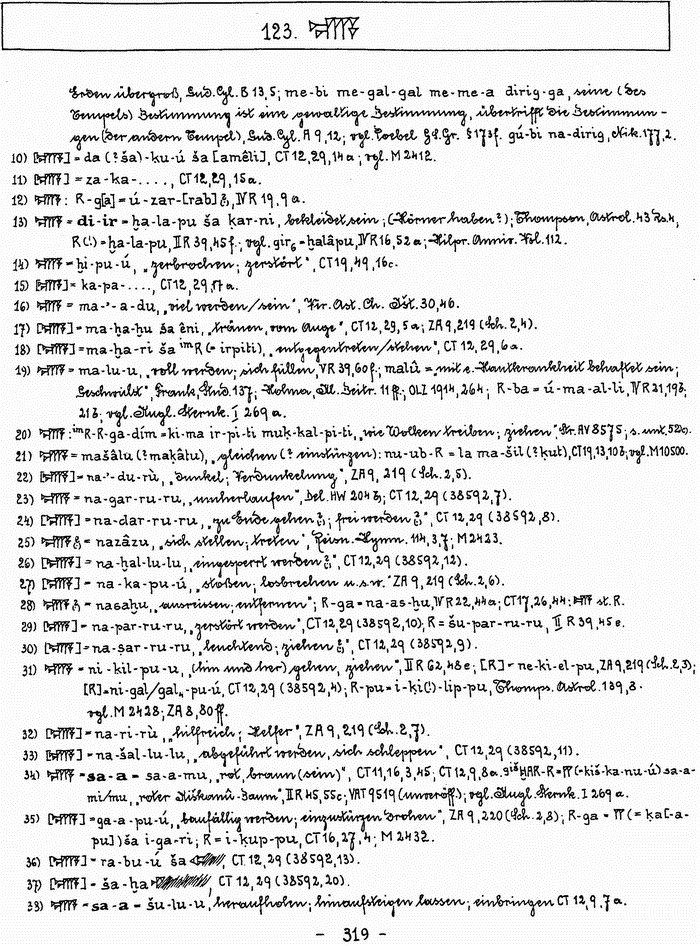 123. 𒋛𒀀
Erden übergroß, Gud. Cyl. B 13,5; me-bi me-gal-gal me-me-a dirig-ga, seine (des
Tempels) Bestimmung ist eine gewaltige Bestimmung, übertrifft die Bestimmun-
gen (der andern Tempel), Gud. Cyl. A 9,12; vgl. Poebel Gd.Gr. § 173f. gú-bi na-dirig, Nik. 177,2.
10) [𒋛𒀀] = da (?ša)-ku-ú ša [amêli], CT 12,29,14a; vgl. M 2412.
11) [𒋛𒀀] = za-ka-...., CT 12,29,15a.
12) 𒋛𒀀: R-g[a] = ú-zar-[rab], IV R 19,9a.
13) 𒋛𒀀 = di-ir = ḫa-la-pu ša ḳar-ni, bekleidet sein; (Hörner haben?); Thompson, Astrol. 43 Rs. 4,
R(!) = ḫa-la-pu, II R 39,45f.; vgl. gir₆ = ḫalâpu, IV R 16,52a; Hilpr. Anniv. Vol. 112.
14) 𒋛𒀀 = ḫi-pu-ú, „zerbrochen; zerstört", CT 19,49,16c.
15) [𒋛𒀀] = ka-pa-...., CT 12,29,17a.
16) 𒋛𒀀 = ma-'-a-du, „viel werden/sein", Vir. Ast. Ch. Išt. 30,46.
17) [𒋛𒀀] = ma-ḫa-ḫu ša êni, „tränen, vom Auge", CT 12,29,5a; ZA 9,219 (Sch. 2,4).
18) [𒋛𒀀] = ma-ḫa-ri ša ⁱᵐR (= irpiti), „entgegentreten/stehen", CT 12,29,6a.
19) 𒋛𒀀 = ma-lu-u, „voll werden; sich füllen, VR 39,60f.; malû = „mit e. Hautkrankheit behaftet sein;
Geschwülst", Frank, Stud. 137; Holma, Kl. Beitr. 11ff.; OLZ 1914,264; R-ba = ú-ma-al-li, IV R 21,19b;
21b; vgl. Kugl. Sternk. I 269a.
20) 𒋛𒀀: ⁱᵐR-R-ga-dím = ki-ma ir-pi-ti muḳ-kal-pi-ti, „wie Wolken treiben; ziehen", Str. AV 8575; s. unt. 522c).
21) 𒋛𒀀 = mašâlu (?maḳâtu), „gleichen (? einstürzen): nu-ub-R = la ma-šil (?ḳut), CT 19,13,10b; vgl. M 10500.
22) [𒋛𒀀] = na-'-du-rù, „dunkel; Verdunkelung", ZA 9, 219 (Sch. 2,5).
23) 𒋛𒀀 = na-gar-ru-ru, „umherlaufen", Del. HW 204b; CT 12,29 (38592,7).
24) [𒋛𒀀] = na-dar-ru-ru, „zu Ende gehen; frei werden", CT 12,29 (38592,8).
25) 𒋛𒀀 = nazâzu, „sich stellen; treten", Reisn. Hymn. 114,3,7; M 2423.
26) [𒋛𒀀] = na-ḫal-lu-lu, „eingesperrt werden", CT 12,29 (38592,12).
27) [𒋛𒀀] = na-ka-pu-ú, „stoßen; losbrechen u.s.w." ZA 9,219 (Sch. 2,6).
28) 𒋛𒀀 = nasaḫu, „ausreissen; entfernen"; R-ga = na-as-ḫu, IV R 22,44a; CT 17,26,44: st. R.
29) [𒋛𒀀] = na-par-ru-ru, „zerstört werden", CT 12,29 (38592,10), R = šu-par-ru-ru, II R 39,45e.
30) [𒋛𒀀] = na-ṣar-ru-ru, „leuchtend; ziehen", CT 12,29 (38592,9).
31) 𒋛𒀀 = ni-kil-pu-u, „(hin und her) gehen, ziehen", II R 62,48e; [R] = ne-ki-el-pu, ZA 9,219 (Sch. 2,3);
[R] = ni-gal/gal₄-pu-ú, CT 12,29 (38592,4); R-pu = i-ḳi(!)-lip-pu, Thomps. Astrol. 139,8.
vgl. M 2428; ZA 8,80ff.
32) [𒋛𒀀] = na-ri-rù, „hilfreich; Helfer", ZA 9,219 (Sch. 2,7).
33) [𒋛𒀀] = na-šal-lu-lu, „abgeführt werden, sich schleppen", CT 12,29 (38592,11).
34) 𒋛𒀀 = sa-a = sa-a-mu, „rot, braun (sein)", CT 11,16,3,45; CT 12,9,8a. ᵍⁱˢHAR-R = (= kiš-ka-nu-ú) sa-a-
mi/mu, „roter Kiškanû-Baum", II R 45,55c; VAT 9519 (unveröff.); vgl. Kugl. Sternk. I 269a.
35) [𒋛𒀀] = ga-a-pu-ú, „baufällig werden; einzustürzen drohen", ZA 9,220 (Sch. 2,8); R-ga = (= ḳa[-a-
pu]) ša i-ga-ri; R = i-ḳup-pu, CT 16,27,4; M 2432.
36) [𒋛𒀀] = ra-bu-ú ša, CT 12,29 (38592,13).
37) [𒋛𒀀] = ša-ḫa, CT 12,29 (38592,20).
38) 𒋛𒀀 = sa-a = šu-lu-u, heraufholen; hinaufsteigen lassen; einbringen CT 12,9,7a.
- 319 -